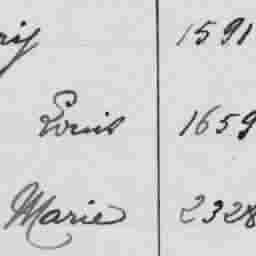 1591
Louis 1659
Marie 2328